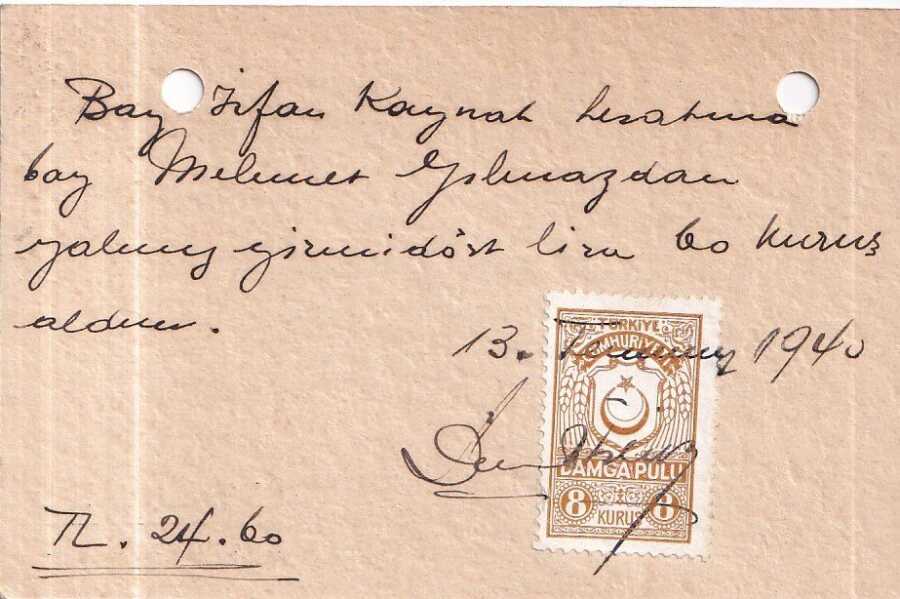 Bay İrfan Kaynak hesabına
bay Mehmet Yılmazdan
yalnız yirmidört lira 60 kuruş
aldım.
13. Temmuz 1940
TÜRKİYE
CUMHURİYETİ
DAMGA PULU
8 KURUŞ 8
TL. 24.60